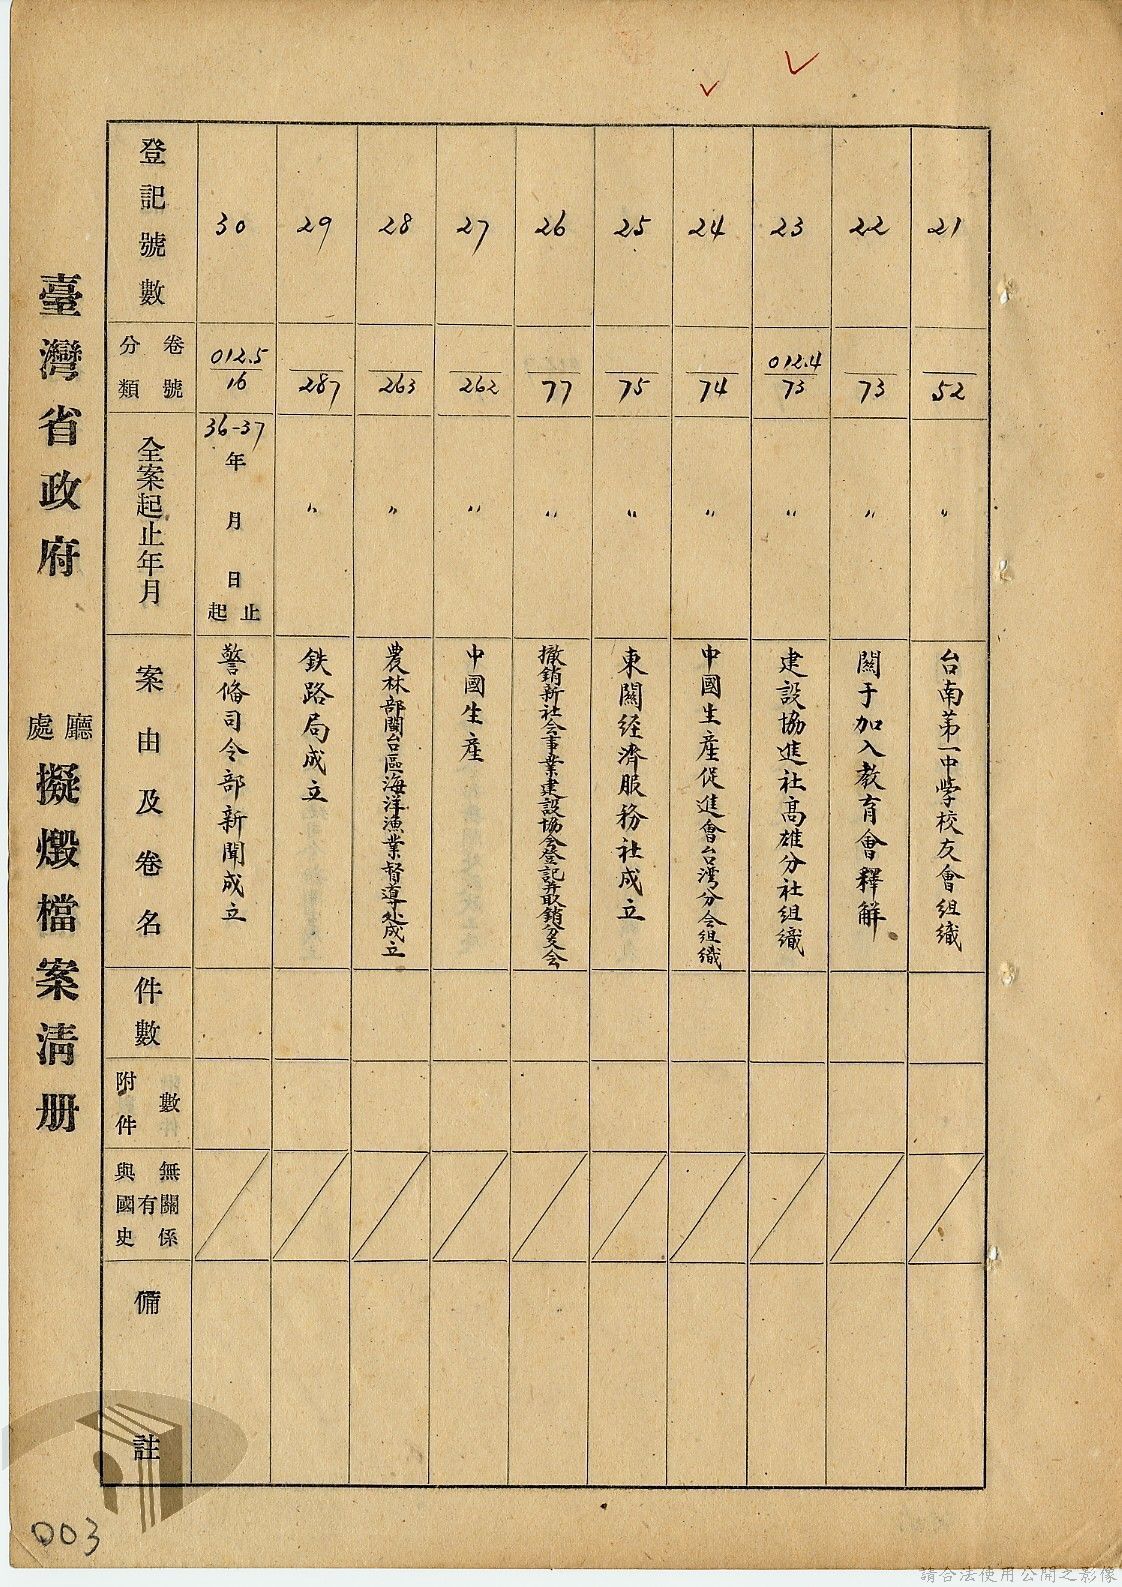 臺灣省政府 廳處 擬燬檔案清册
登記號數
分類 卷號
全案起止年月
案由及卷名
件數
附件 件數
與國史有無關係
備註
30
012.5
16
36-37
年 月 日 起止
警俻司令部新聞成立
29
287
〃
鉄路局成立
28
263
〃
農林部閩台區海洋漁業督導处成立
27
262
〃
中國生產
26
77
〃
撤銷新社会事業建設協会登記并取銷分支会
25
75
〃
東關経濟服務社成立
24
74
〃
中國生產促進會台湾分会組織
23
012.4
73
〃
建設協進社高雄分社組織
22
73
〃
關于加入教育會釋解
21
52
〃
台南第一中学校友會組織
003
請合法使用公開之影像